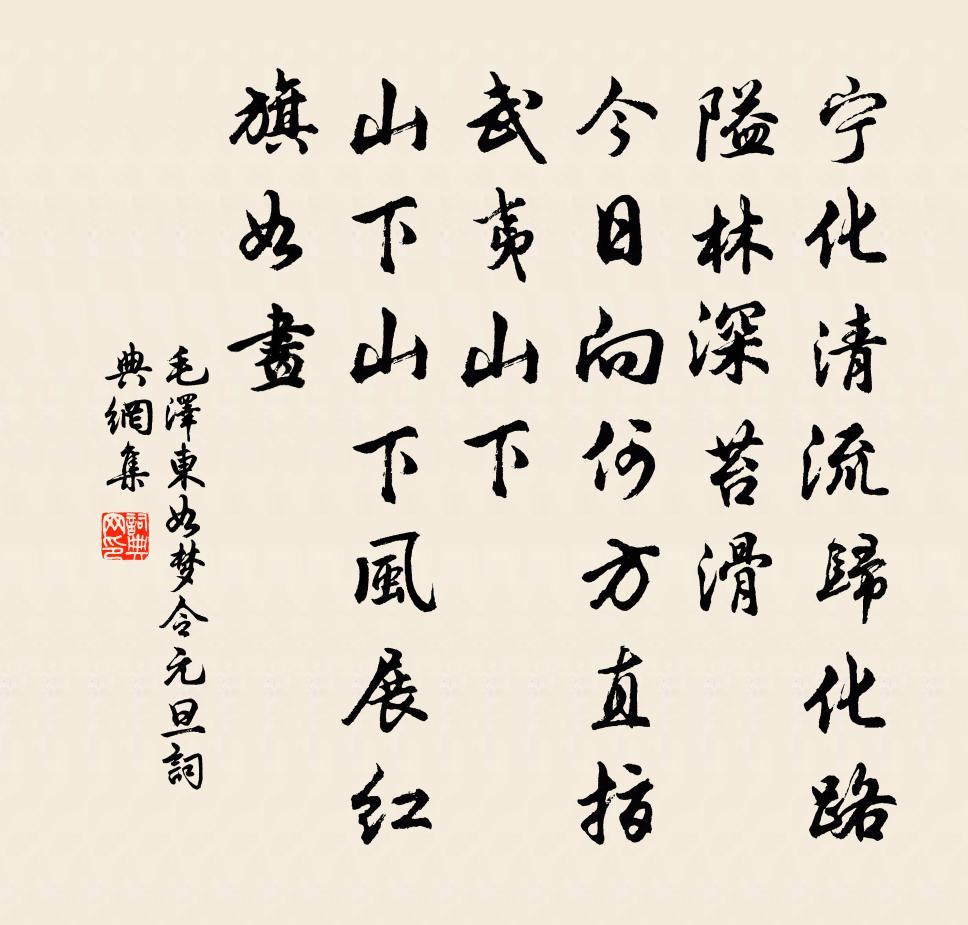 宁化清流歸化路
隘林深苔滑
今日向何方直指
武夷山下
山下山下風展红
旗如畫
毛澤東如梦令元旦詞
典網集
詞典
网印